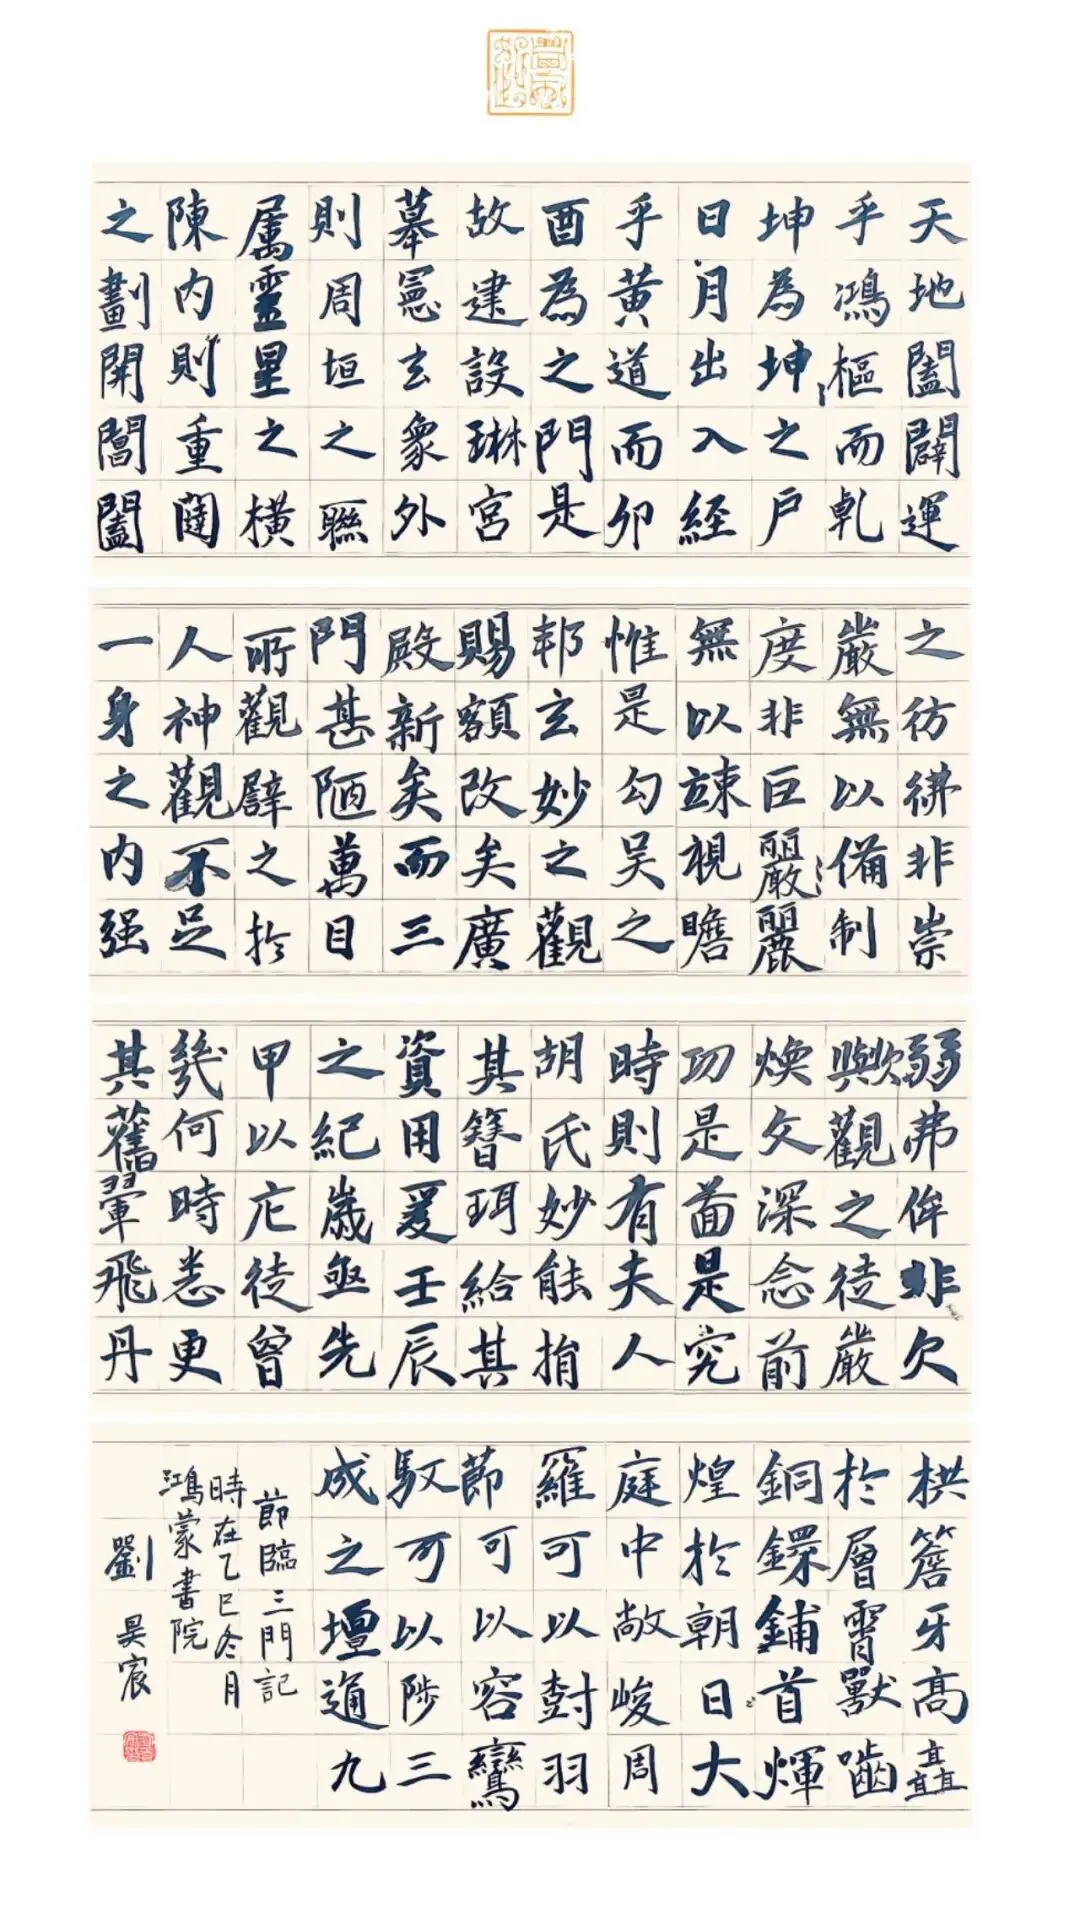 天地闔闢運
乎鴻樞而乹
坤為坤之戶
日月出入經
乎黃道而卯
酉為之門是
故建設琳宮
摹憲玄象外
則周垣之聯
属靈星之橫
陳內則重闥
之劃開閶闔
之彷彿非崇
嚴無以備制
度非巨嚴麗
無以竦視瞻
惟是勾吴之
邦玄妙之觀
賜額改矣廣
殿新矣而三
門甚陋萬目
所觀譬之於
人神觀不足
一身之內强
弱弗侔非欠
歟觀之徒嚴
煥文深念前
功是啚是究
時則有夫人
胡氏妙能捐
其簪珥給其
資用爰壬辰
之紀歲亟先
甲以庀徒曾
幾何時悉更
其舊翬飛丹
栱簷牙高矗
於層霄獸嚙
銅鐶鋪首煇
煌於朝日大
庭中敞峻周
羅可以尌羽
節可以容鸞
馭可以陟三
成之壇通九
節臨三門記
時在乙巳冬月
鴻蒙書院
劉昊宸